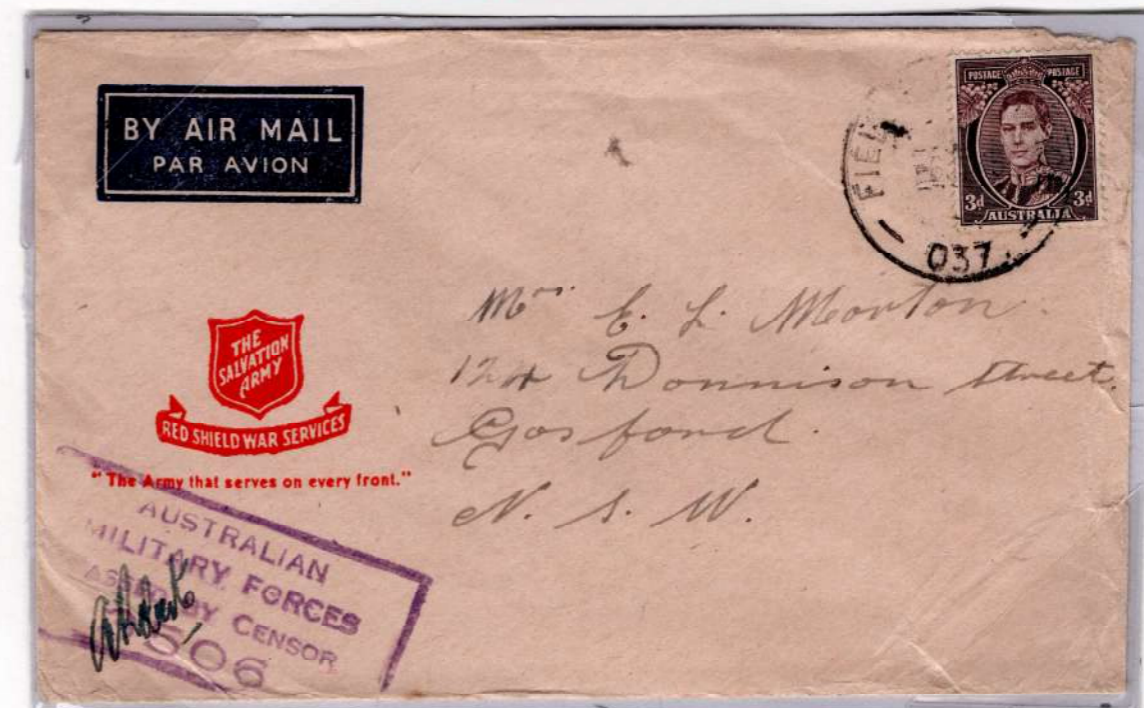 BY AIR MAIL
PAR AVION
POSTAGE POSTAGE
3d 3d
AUSTRALIA
FIEL
037
THE
SALVATION
ARMY
RED SHIELD WAR SERVICES
"The Army that serves on every front."
Mrs E. L. Morton.
124 Donnison Street.
Gosford.
N. S. W.
AUSTRALIAN
MILITARY FORCES
ASSED BY CENSOR
506